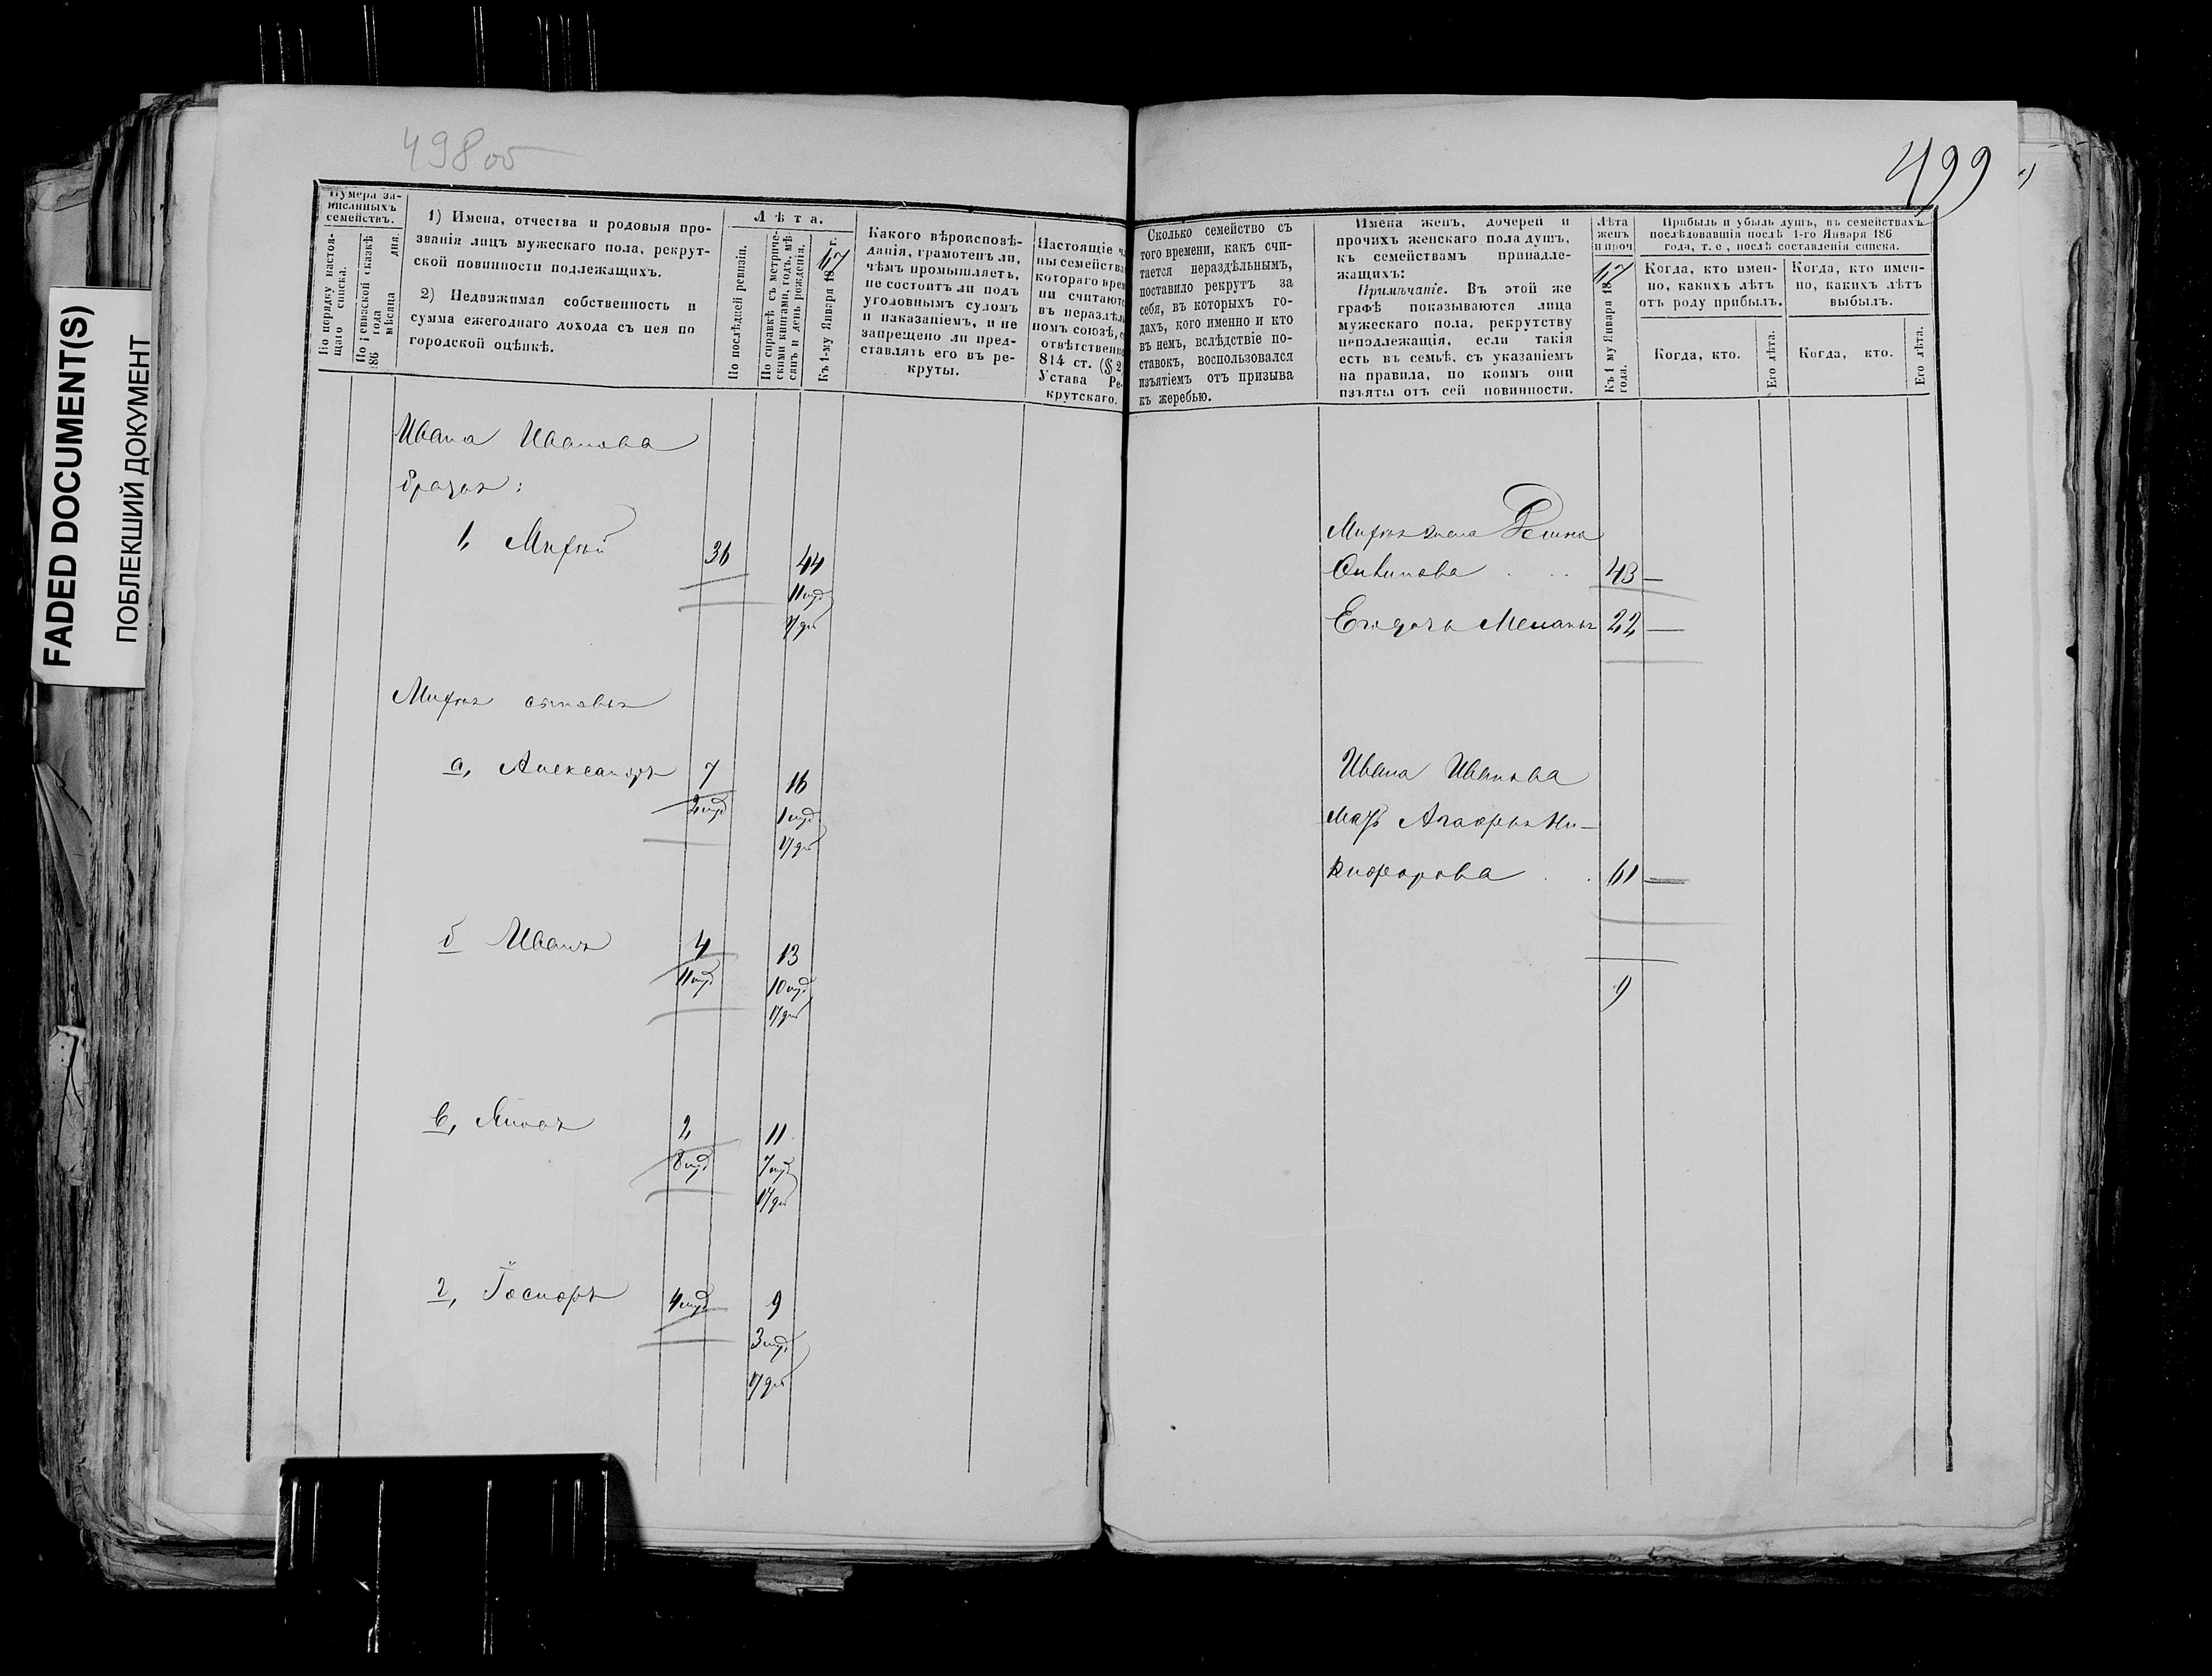 FADED DOCUMENT(S)
ПОБЛЕКШИЙ ДОКУМЕНТ
498 об
499
Нумера за-
писанныхъ
семействъ.
По порядку настоя-
щаго списка.
По ревизской сказкѣ
186 года
мѣсяца дня.
1) Имена, отчества и родовыя про-
званія лицъ мужескаго пола, рекрут-
ской повинности подлежащихъ.
2) Недвижимая собственность и
сумма ежегоднаго дохода съ нея по
городской оцѣнкѣ.
Лѣта.
По послѣдней ревизіи.
По справкѣ съ метриче-
скими книгами, годъ, мѣ-
сяцъ и день рожденія.
Къ 1-му Января 1867 г.
Какого вѣроисповѣ-
данія, грамотенъ ли,
чѣмъ промышляетъ,
не состоитъ ли подъ
уголовнымъ судомъ
и наказаніемъ, и не
запрещено ли пред-
ставлять его въ ре-
круты.
Настоящіе ч
ны семейства
котораго врем
ни считаютс
въ нераздѣл
номъ союзѣ, с
отвѣтственно
814 ст. (§ 2
Устава Ре-
крутскаго.
Сколько семейство съ
того времени, какъ счи-
тается нераздѣльнымъ,
поставило рекрутъ за
себя, въ которыхъ го-
дахъ, кого именно и кто
въ немъ, вслѣдствіе по-
ставокъ, воспользовался
изъятіемъ отъ призыва
къ жеребью.
Имена женъ, дочерей и
прочихъ женскаго пола душъ,
къ семействамъ принадле-
жащихъ:
Примѣчаніе. Въ этой же
графѣ показываются лица
мужескаго пола, рекрутству
неподлежащія, если такія
есть въ семьѣ, съ указаніемъ
на правила, по коимъ они
изъяты отъ сей повинности.
Лѣта
женъ
и проч
Къ 1 му Января 1867
года.
Прибыль и убыль душъ, въ семействахъ
послѣдовавшія послѣ 1-го Января 186
года, т. е., послѣ составленія списка.
Когда, кто имен-
но, какихъ лѣтъ
отъ роду прибылъ.
Когда, кто имен-
но, какихъ лѣтъ
выбылъ.
Когда, кто.
Его лѣта.
Когда, кто.
Его лѣта.
Ивана Иванова
братья:
1, 36 44
11 мѣс
17 дн
сыновья
а, Александръ 7 16
2 мѣс 1 мѣс
17 дн
б Иванъ 4 13
11 мѣс 10 мѣс
17 дн
в, 2 11
8 мѣс 7 мѣс
17 дн
г, 4 мѣс 9
3 мѣс
17 дн
жена
43 —
Его дочь 22 —
Ивана Иванова
мать Ни-
кифорова . . 61 —
9